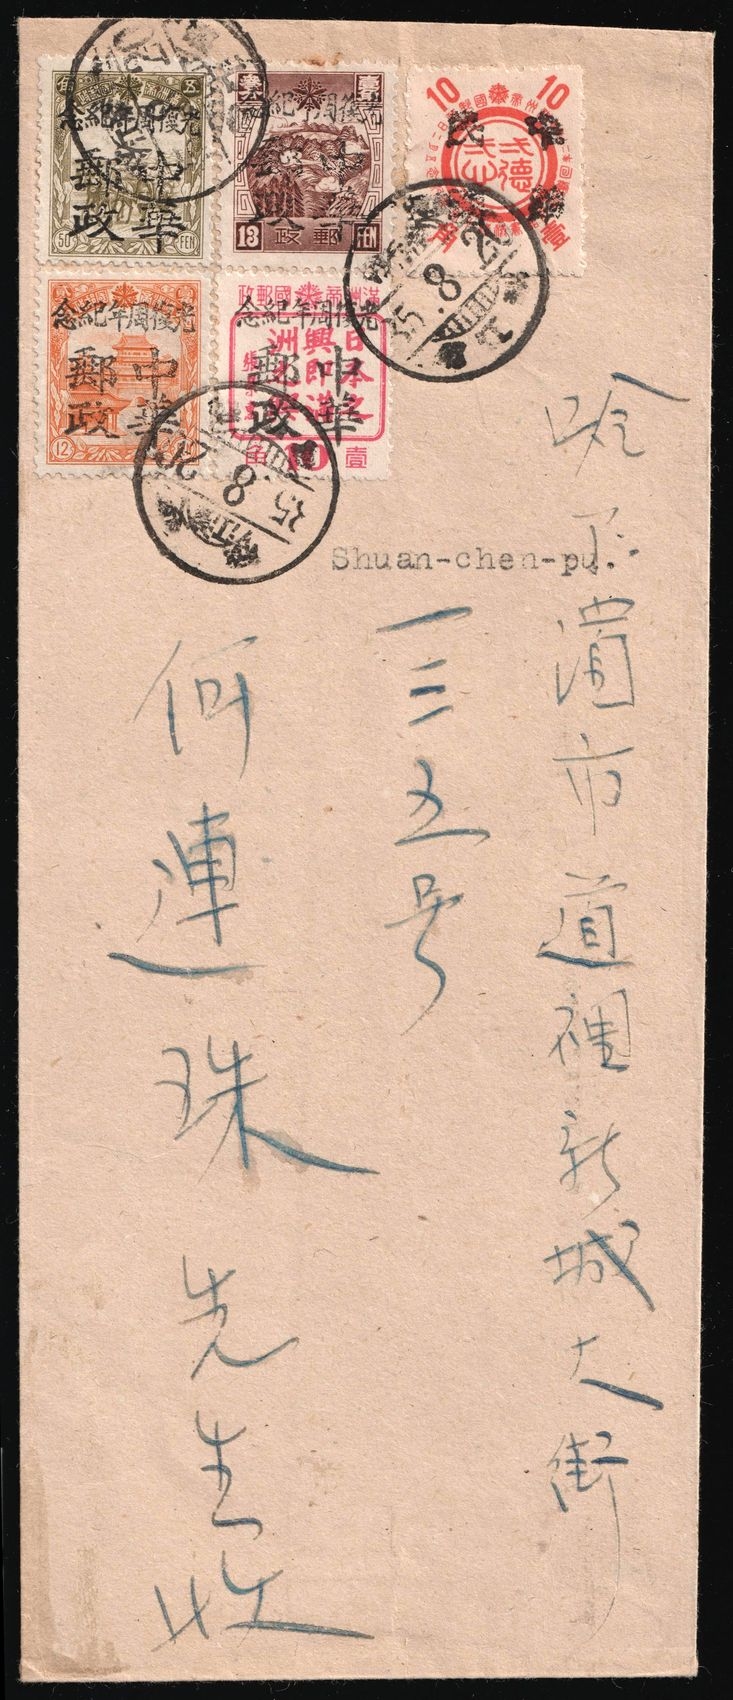 光復周年紀念
中華
郵政
50 FEN
光復周年紀念
13 郵政 FEN
10 10
光復周年紀念
中華
郵政
12
滿洲帝國郵政
光復周年紀念
中華
郵政
日本之
興即滿
洲之興
10
壹
35.8.20
35.8.20
Shuan-chen-pu.
哈尔濱市道裡新城大街
一三五号
何連珠先生收